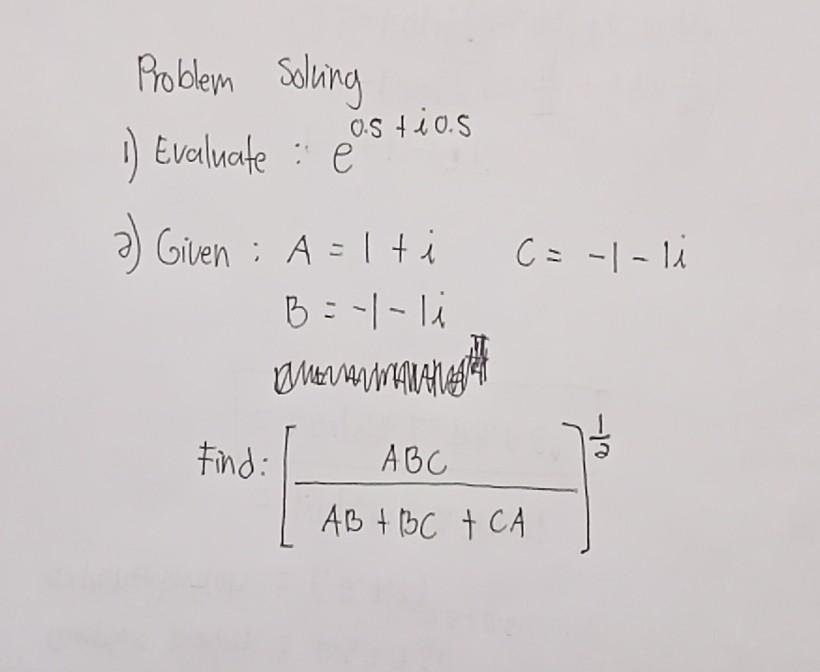 Problem Solving
1) Evaluate : e^0.5 + i0.5
2) Given : A = 1 + i C = -1 - 1i
B = -1 - 1i
Find: [ABC / AB + BC + CA]^1/2